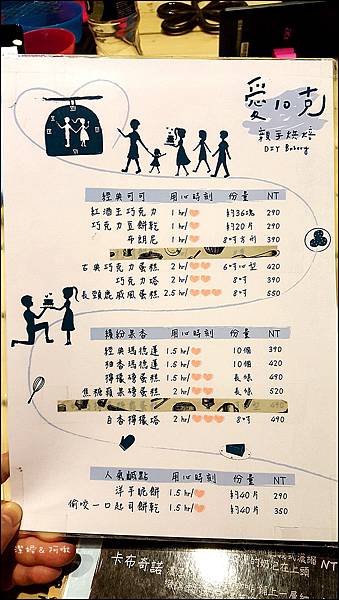 愛10克
親手烘焙
DIY Bakery
經典可可 用心時刻 份量 NT
紅酒生巧克力 1 hr/ 約36塊 290
巧克力豆餅乾 1 hr/ 約20片 290
布朗尼 1 hr/ 8吋方形 390
古典巧克力蛋糕 2 hr/ 6吋心型 420
巧克力塔 2 hr/ 8吋 390
長頸鹿戚風蛋糕 2.5 hr/ 8吋 550
繽紛果香 用心時刻 份量 NT
經典瑪德蓮 1.5 hr/ 10個 390
柚香瑪德蓮 1.5 hr/ 10個 420
檸檬磅蛋糕 1.5 hr/ 長條 490
焦糖蘋果磅蛋糕 2 hr/ 長條 520
百香檸檬塔 2 hr/ 8吋 490
人氣鹹點 用心時刻 份量 NT
洋芋脆餅 1.5 hr/ 約40片 290
偷咬一口起司餅乾 1.5 hr/ 約40片 350
卡布奇諾
NT